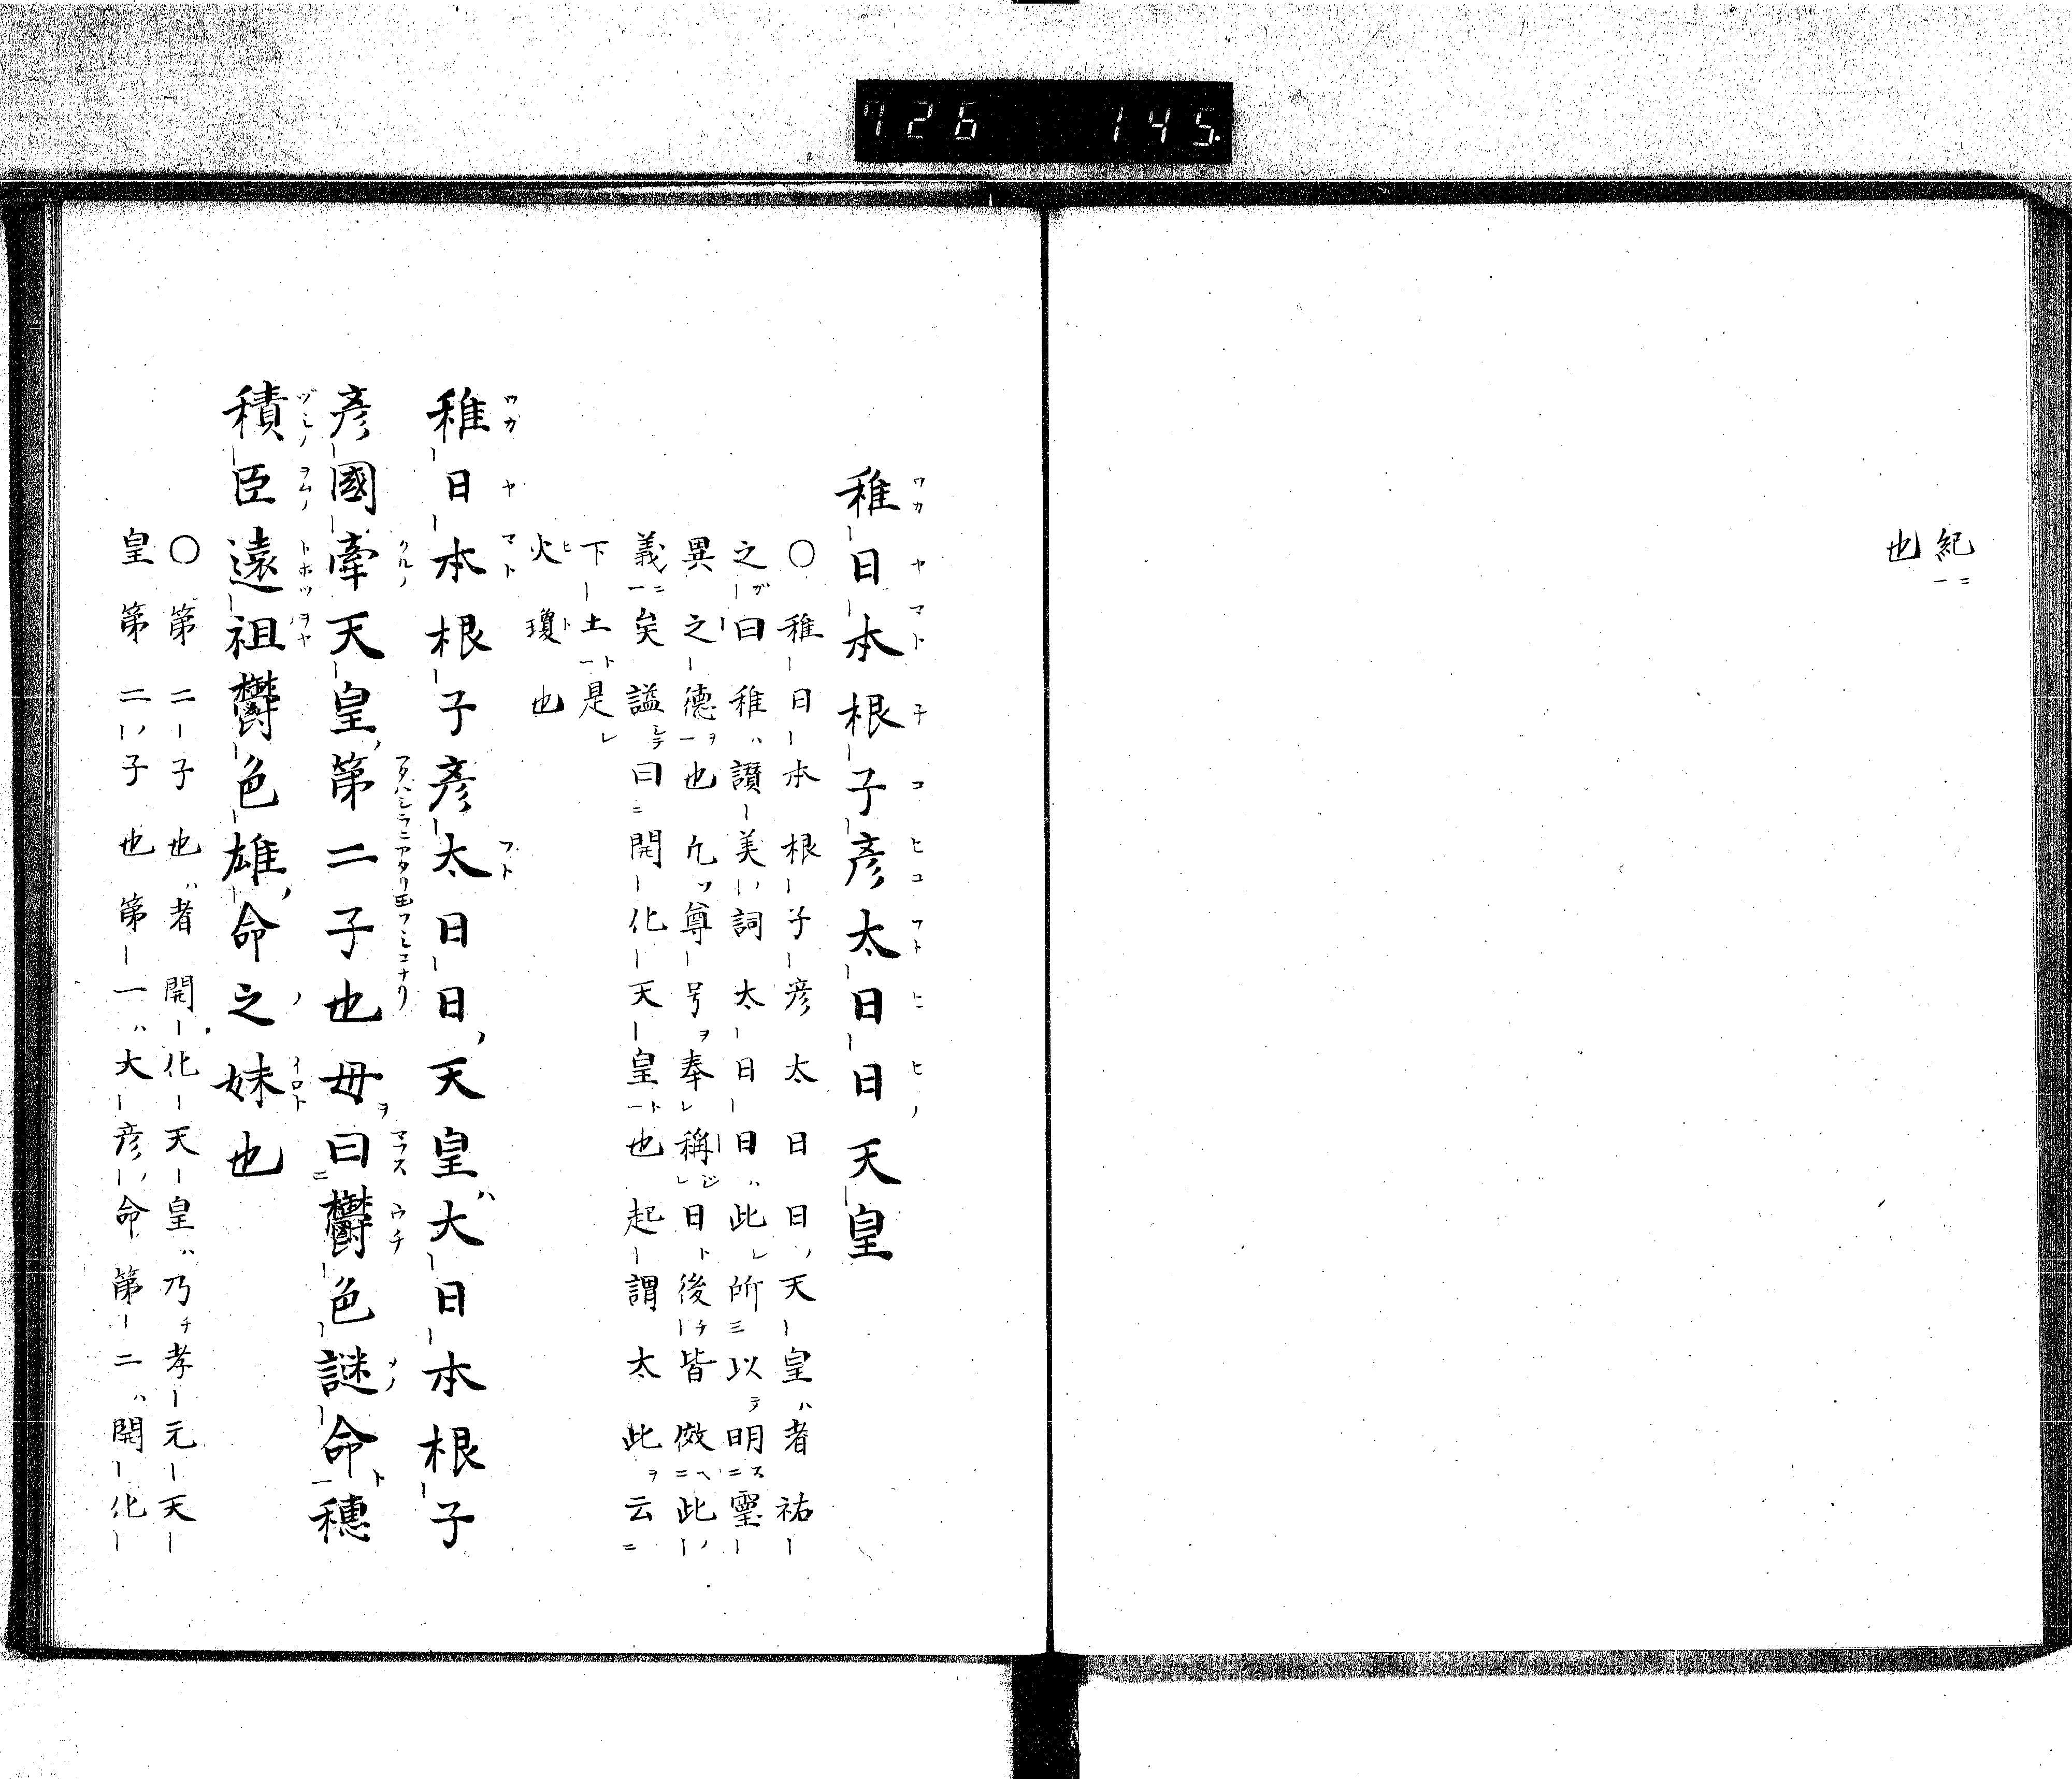 726 145
紀
也
稚日本根子彦太日日天皇
○稚日本根子彦太日日天皇者祐
之曰稚讃美詞太日日此所以明霊
異之徳也凢尊号奉稱日後皆傚此
義矣謚曰開化天皇也起謂太此云
下土是
火瓊也
稚日本根子彦太日日天皇大日本根子
彦國牽天皇第二子也母曰欝色謎命穗
積臣遠祖欝色雄命之妹也
○第二子也者開化天皇乃孝元天
皇第二子也第一大彦命第二開化